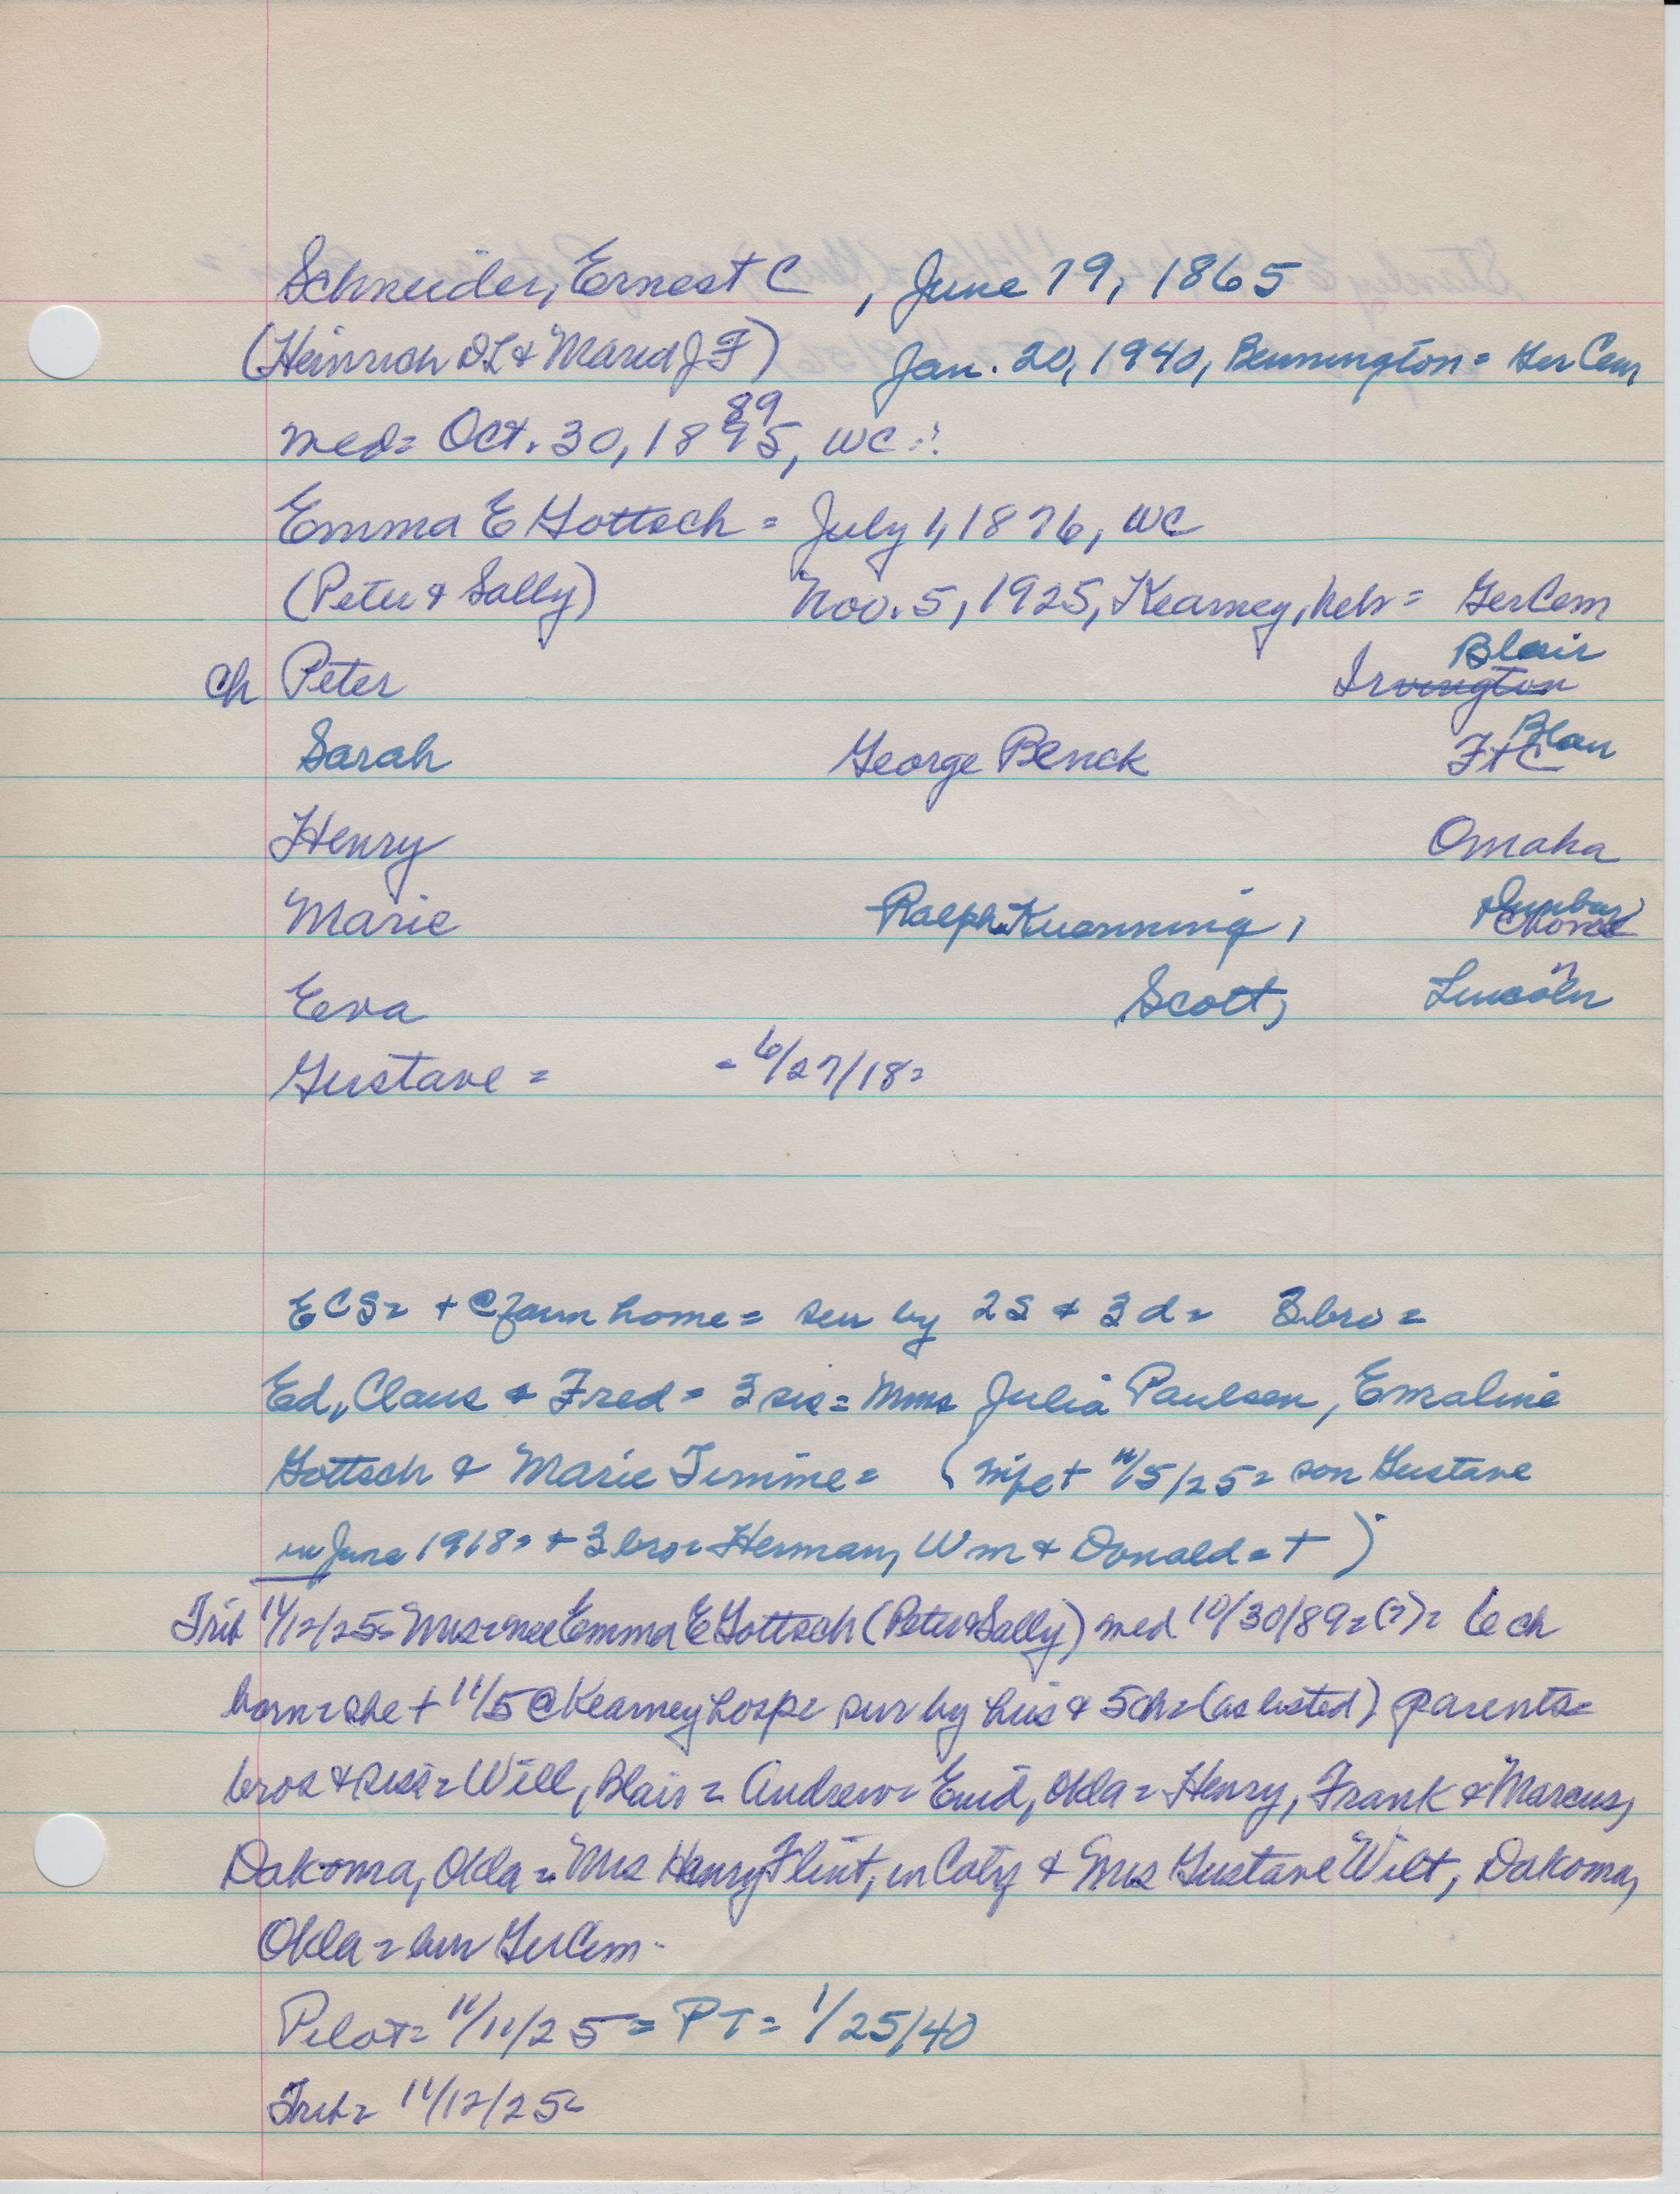 Schneider, Ernest C , June 19, 1865
(Heinrich DL & Maria J F) Jan. 20, 1940, Bennington = Ger Cem
89
med= Oct. 30, 1895, WC
Emma E Gottsch = July 1, 1876, WC
(Peter & Sally) Nov. 5, 1925, Kearney, Neb = Ger Cem
Blair
ch Peter Irvington
Blair
Sarah George Benck Ft C
Henry Omaha
Dunbar
Marie Ralph Kuenning,
Eeva Scott, Lincoln
Gustave = = 6/27/18=
ECS= + @ farm home = sur by 2S & 3d= 3 bro =
Ed, Claus & Fred = 3 sis = Mms Julia Paulsen, Emaline
Gottsch & Marie Timme = (wife + 11/5/25 = son Gustave
in June 1918= + 3 bro= Herman, Wm & Donald = +)
Trib 11/12/25= Mrs= nee Emma E Gottsch (Peter & Sally) med 10/30/89=(?)= 6 ch
born= she + 11/5 @ Kearney hosp= sur by hus & 5ch= (as listed) parents=
bros & sis= Will, Blair= Andrew= Enid, Okla= Henry, Frank & Marcus,
Dakoma, Okla= Mrs Henry Flint, in Coty & Mrs Gustave Wilt, Dakoma,
Okla = bur Ger Cem
Pilot= 11/11/25 = PT= 1/25/40
Trib= 11/12/25=